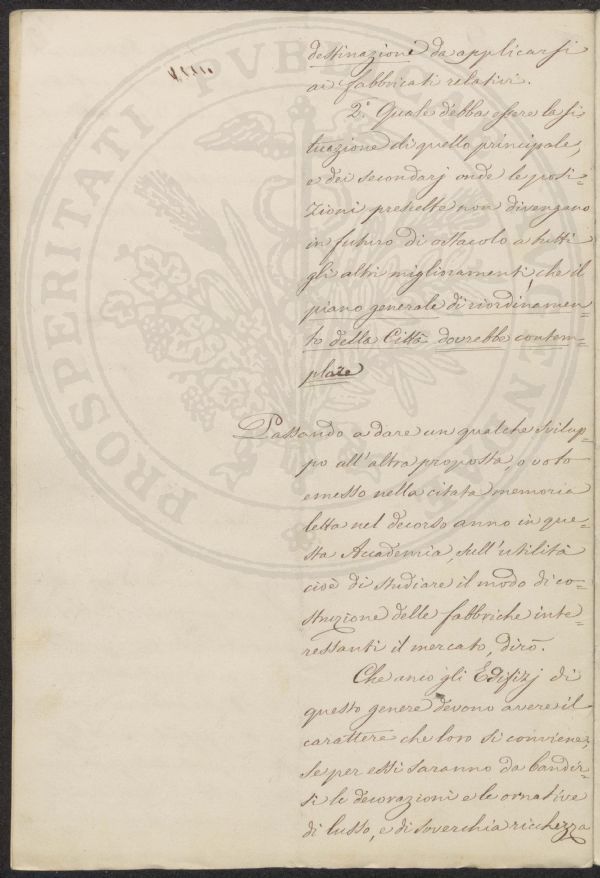 destinazioni da applicarsi
ai fabbricati relativi.
2.° Quale debba essere la si-
tuazione di quello principale,
e dei secondarj onde le posi-
zioni prescelte non divengano
in futuro di ostacolo a tutti
gli altri miglioramenti, che il
piano generale di riordinamen=
to della Città dovrebbe contem=
plare
Passando a dare un qualche svilup=
po all'altra proposta, o voto
emesso nella citata memoria
letta nel decorso anno in que=
sta Accademia, sull'utilità
cioè di studiare il modo di co=
struzione delle fabbriche inte=
ressanti il mercato, dirò.
Che anco gli Edifizj di
questo genere devono avere il
carattere che loro si conviene,
se per essi saranno da bandir=
si le decorazioni e le ornative
di lusso, e di soverchia ricchezza
PROSPERITATI PVBLICAE AVGENDAE